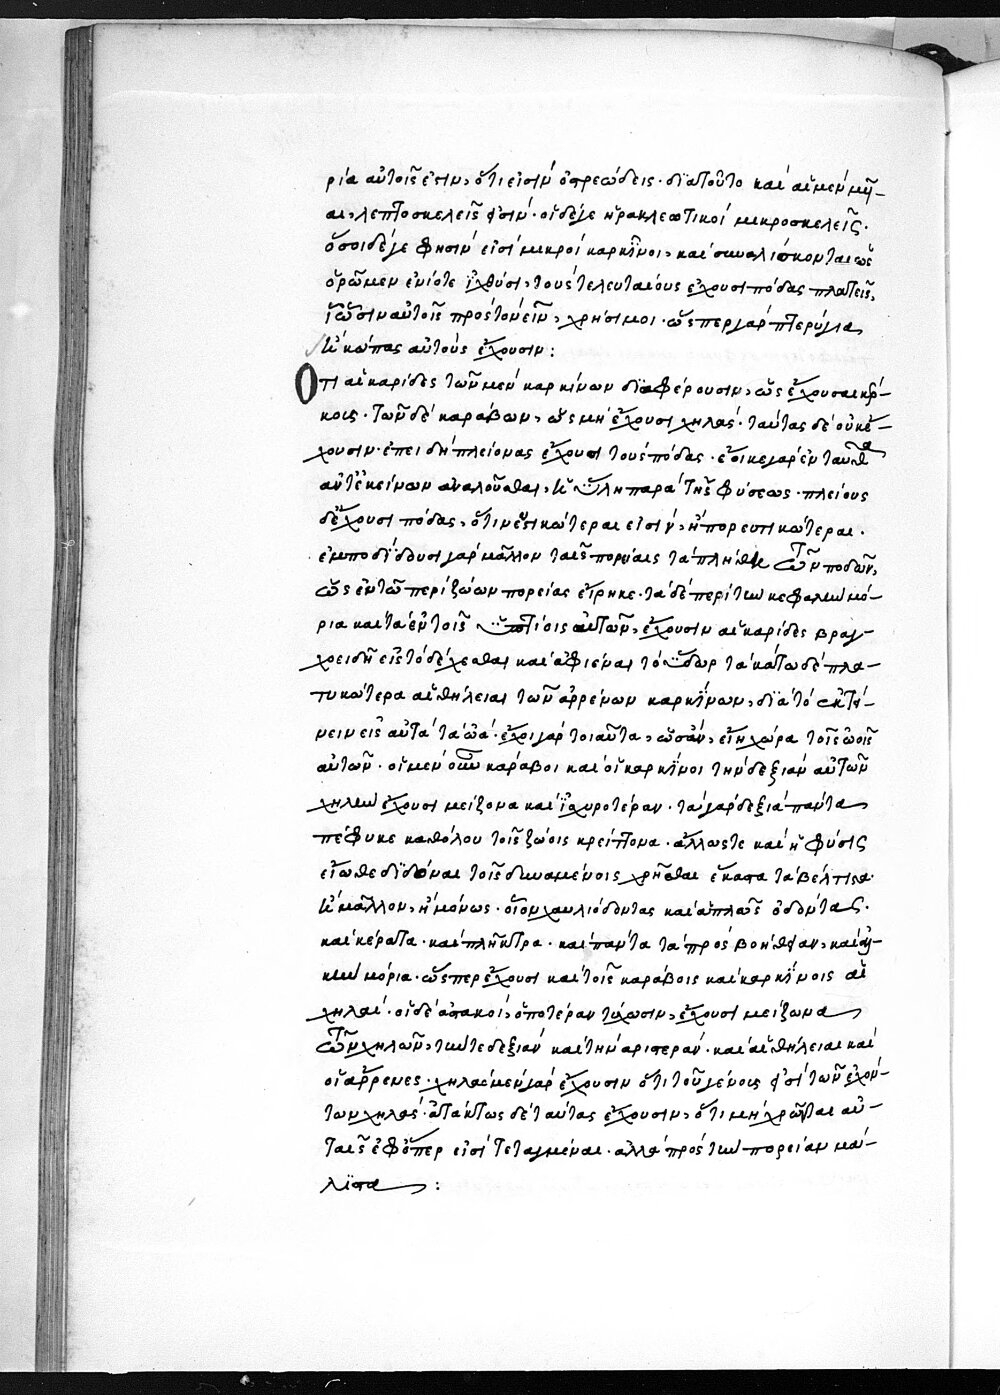 ρία αὐτοῖς ἐστιν, ὅτι εἰσὶν ὀστρεώδεις. διατοῦτο καὶ αἱ μὲν μῆ-
αι, λεπτοσκελεῖς φησίν. οἱ δέ γε ἡρακλεωτικοὶ μικροσκελεῖς.
ὅσοι δέ γε φησὶν εἰσὶ μικροὶ καρκῖνοι, καὶ συναλίσκονται ὡς
ὁρῶμεν ἐνίοτε ἰχθύσι, τοὺς τελευταίους ἔχουσι πόδας πλατεῖς,
ἵν' ὦσιν αὐτοῖς πρὸς τὸ νεῖν, χρήσιμοι. ὥσπερ γὰρ πτερύγια
καὶ κώπας αὐτοὺς ἔχουσιν:
Ὅτι αἱ καρίδες τῶν μὲν καρκίνων διαφέρουσιν, ὡς ἔχουσαι κέρ-
κοις. τῶν δὲ καράβων, ὡς μὴ ἔχουσι χηλάς. ταύτας δὲ οὐκ ἔ-
χουσιν. ἐπειδὴ πλείονας ἔχουσι τοὺς πόδας. ἔοικε γὰρ ἐνταῦθα
ἀντ' ἐκείνων ἀναλοῦσθαι, καὶ ὕλη παρὰ τῆς φύσεως. πλείους
δ' ἔχουσι πόδας, ὅτι νευστικώτεραι εἰσίν, ἢ πορευτικώτεραι.
ἐμποδίζουσι γὰρ μᾶλλον ταῖς πορείαις τὰ πλήθη τῶν ποδῶν,
ὡς ἐν τῷ περὶ ζώων πορείας εἴρηκε. τὰ δὲ περὶ τὴν κεφαλὴν μό-
ρια καὶ τὰ ἐν τοῖς ὑπτίοις αὐτῶν, ἔχουσιν αἱ καρίδες βραγ-
χοειδῆ εἰς τὸ δέχεσθαι καὶ ἀφιέναι τὸ ὕδωρ τὰ κάτω δὲ πλα-
τυκώτερα αἱ θήλειαι τῶν ἀρρένων καρκίνων, διὰ τὸ ἐκτεί-
νειν εἰς αὐτὰ τὰ ὠά. ἔχοι γὰρ τοιαῦτα, ὡσὰν, εἴη χώρα τοῖς ὠοῖς
αὐτῶν. οἱ μὲν οὖν κάραβοι καὶ οἱ καρκῖνοι τὴν δεξιὰν αὐτῶν
χηλὴν ἔχουσι μείζονα καὶ ἰσχυροτέραν. τὰ γὰρ δεξιὰ πάντα
πέφυκε καθόλου τοῖς ζώοις κρείττονα. ἄλλως τε καὶ ἡ φύσις
εἴωθε διδόναι τοῖς δυναμένοις χρῆσθαι ἕκαστα τὰ βέλτιστα.
καὶ μᾶλλον, ἢ μόνως. οἷον χαυλιόδοντας καὶ ἁπλῶς ὀδόντας.
καὶ κέρατα. καὶ πλῆκτρα. καὶ πάντα τὰ πρὸς βοήθειαν, καὶ ἀλ-
κὴν μόρια. ὥσπερ ἔχουσι καὶ τοῖς καράβοις καὶ καρκίνοις αἱ
χηλαί. οἱ δὲ ἀστακοὶ, ὁποτέραν τύχωσιν, ἔχουσι μείζωνα
τῶν χηλῶν, τήν τε δεξιὰν καὶ τὴν ἀριστεράν. καὶ αἱ θήλειαι καὶ
οἱ ἄρρενες. χηλὰς μὲν γὰρ ἔχουσιν ὅτι τοῦ γένους φησὶ τῶν ἐχόν-
των χηλάς. ἀτάκτως δὲ ταύτας ἔχουσιν, ὅτι μὴ χρῶνται αὐ-
ταῖς ἐφ' ὅπερ εἰσὶ τεταγμέναι. ἀλλὰ πρὸς τὴν πορείαν μά-
λιστα: